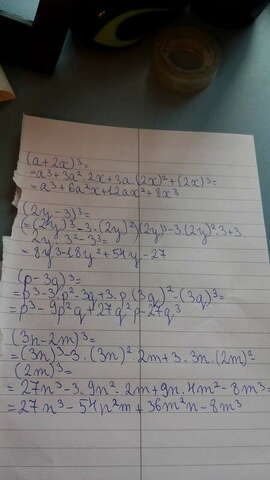 (a+2x)³=
=a³+3a²·2x+3a·(2x)²+(2x)³=
=a³+6a²x+12ax²+8x³
(2y-3)³=
=(2y)³-3·(2y)²·3+3·
2y·3²-3³=
=8y³-18y²+54y-27
(p-3q)³=
=p³-3·p²·3q+3·p·(3q)²-(3q)³=
=p³-9p²q+27q²p-27q³
(3n-2m)³=
=(3n)³-3·(3n)²·2m+3·3n·(2m)²-
(2m)³=
=27n³-3·9n²·2m+9n·4m²-8m³=
=27n³-54n²m+36m²n-8m³